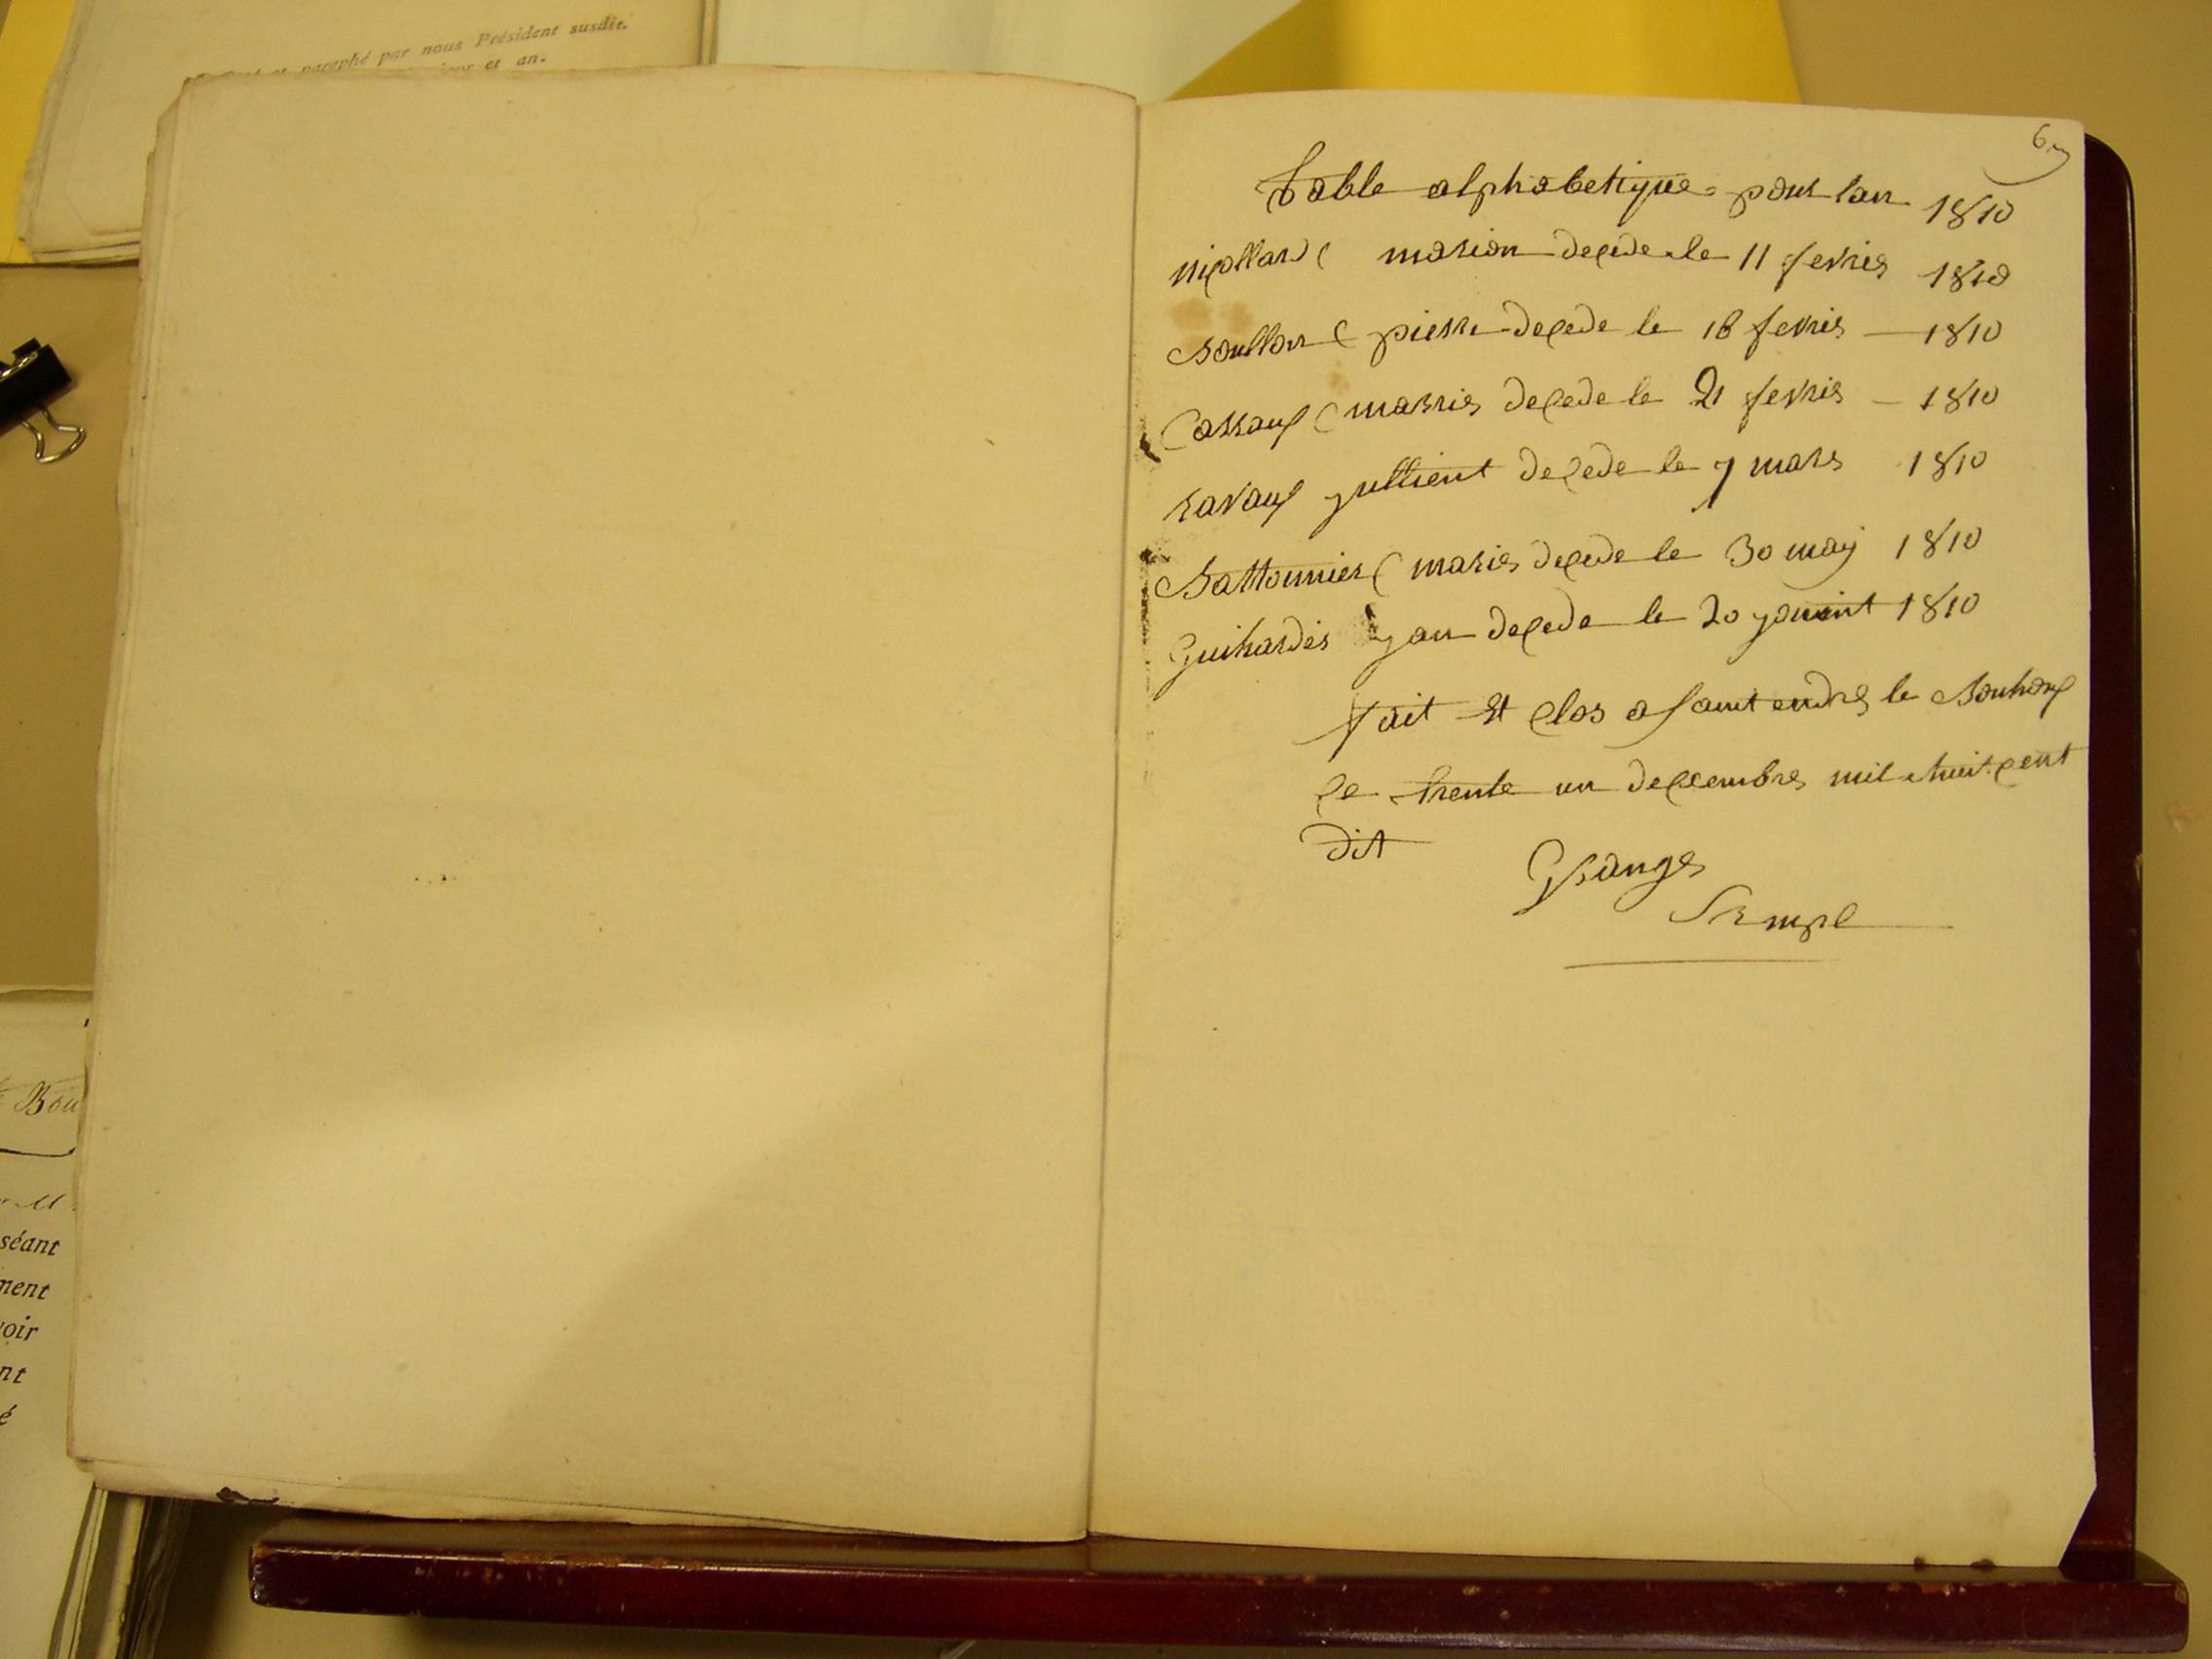 paraphé par nous Président susdit.
et an.
6
Table alphabetique pour lan 1810
nicollard marion decede le 11 fevrier 1810
Boullon pierre decede le 18 fevrier 1810
Cassaux marrie decede le 21 fevrier 1810
ravaux jullient decede le 7 mars 1810
Battonnier marie decede le 30 may 1810
Guihardes jan decede le 20 jouint 1810
fait et clos a saint endre le Bouhoux
ce trente un decembre mil huit cent
dit
Grange
Bou
séant
ment
oir
nt
é